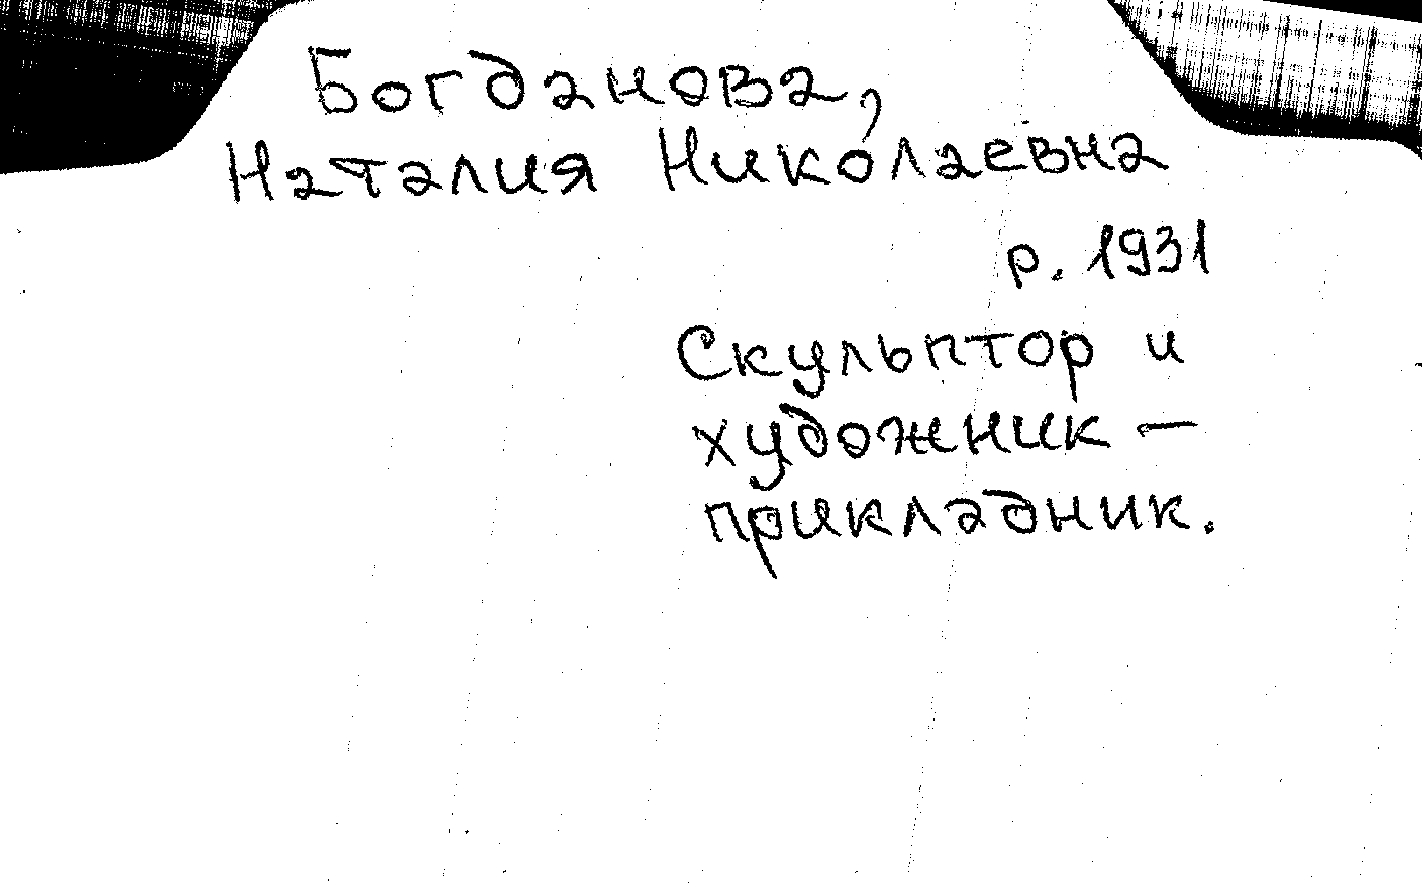 Богданова,
Наталия Николаевна
р. 1931
Скульптор и
художник —
прикладник.